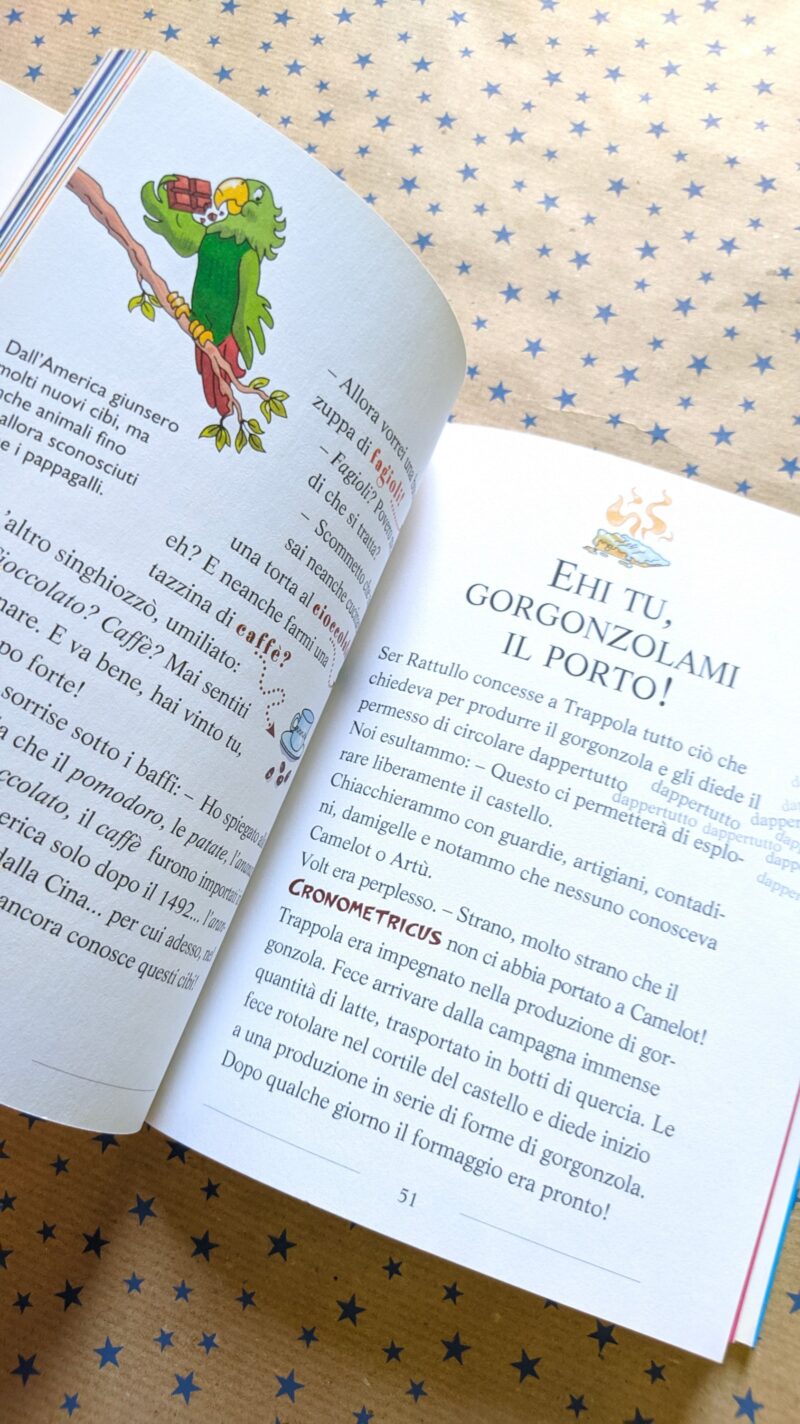 Dall'America giunsero
molti nuovi cibi, ma
anche animali fino
allora sconosciuti
e i pappagalli.
– Allora vorrei una
zuppa di fagioli!
– Fagioli?
di che si tratta?
– Scommetto che
sai neanche
una torta al
eh? E neanche farmi una
tazzina di caffè?
'altro singhiozzò, umiliato:
Cioccolato? Caffè? Mai sentiti
nare. E va bene, hai vinto tu,
po forte!
sorrise sotto i baffi: – Ho spiegato
a che il pomodoro, le patate,
ccolato, il caffè furono
erica solo dopo il 1492...
dalla Cina... per cui adesso,
ancora conosce questi cibi!
EHI TU,
GORGONZOLAMI
IL PORTO!
Ser Rattullo concesse a Trappola tutto ciò che
chiedeva per produrre il gorgonzola e gli diede il
permesso di circolare dappertutto dappertutto
dappertutto dappertutto
Noi esultammo: – Questo ci permetterà di esplo-
rare liberamente il castello.
Chiacchierammo con guardie, artigiani, contadi-
ni, damigelle e notammo che nessuno conosceva
Camelot o Artù.
Volt era perplesso. – Strano, molto strano che il
CRONOMETRICUS non ci abbia portato a Camelot!
Trappola era impegnato nella produzione di gor-
gonzola. Fece arrivare dalla campagna immense
quantità di latte, trasportato in botti di quercia. Le
fece rotolare nel cortile del castello e diede inizio
a una produzione in serie di forme di gorgonzola.
Dopo qualche giorno il formaggio era pronto!
51